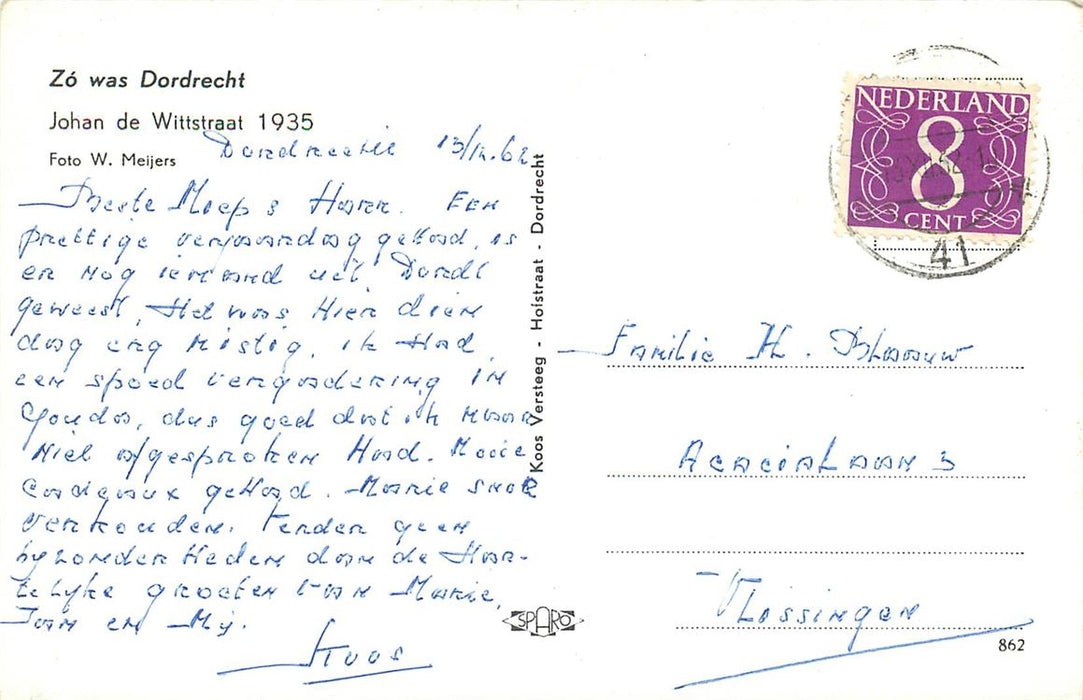 Zó was Dordrecht
Johan de Wittstraat 1935
Foto W. Meijers
Dordrecht 13/12.62
Beste Miep & Haren. Een
prettige verjaardag gehad, is
er nog iemand uit Dordt
geweest, Het was Hier dien
dag erg mistig, ik Had
een spoed vergadering in
Gouda, dus goed dat ik maar
niet afgesproken Had. Mooie
Cadeaux gehad. Marie snot
verkouden. Verder geen
byzonderheden dan de Har-
telyke groeten van Marie,
Jan en My.
Koos
Koos Versteeg - Hofstraat - Dordrecht
SPARO
NEDERLAND
8
CENT
41
Familie H. Blaauw
Acacialaan 3
Vlissingen
862